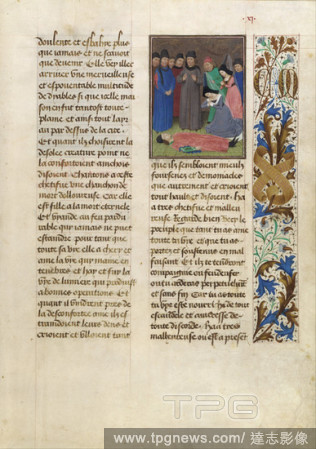 .xj.
doulente et esbahie plus
que iamais et ne scauoit
que deuenir Et elle vey illec
arriuer vne merueilleuse
et espouentable multitude
de dyables si que celle mai
son en fut tantost toute
plaine et ainsi tout lair
au par dessus de la cite.
Et quant ilz choisirent la
desolee creature point ne
la conforterent ainchois
disoient Chantons a ceste
chetiue vne chanchon de
mort dolloureuse Car elle
est fille a la mort eternelle
Et viande au feu pardu
rable qui iamais ne puet
estaindre pour tant que
toute sa vie elle a chery et
ame la vye qui maine en
tenebres et hay et fuy la
vye de lumiere qui conduist
a bonnes operations Et
quant ilz vindrent pres de
la desconfortee ame ilz es
traindoient leurs dens et
crioient et vlloient tant
que ilz sembloient mieulx
foursenes et demoniacles
que autrement et crioient
tout hault et disoient. ha a
tres chetiue et malheu
reuse Regarde bien veez cy
le peuple que tant tu as ame
toute ta vye et que tu as
portes et soustenus en mal
faisant Et ilz te tendront
compaignie en fendenfer
ou tu ardras perpetuelment
et sans fin Car tu as toute
ta vye este nourrice de tout
escandele et amoresse de
toute discorde. ha a tres
malheureuse ou est a present
TPG
www.tpgnews.com / 達志影像